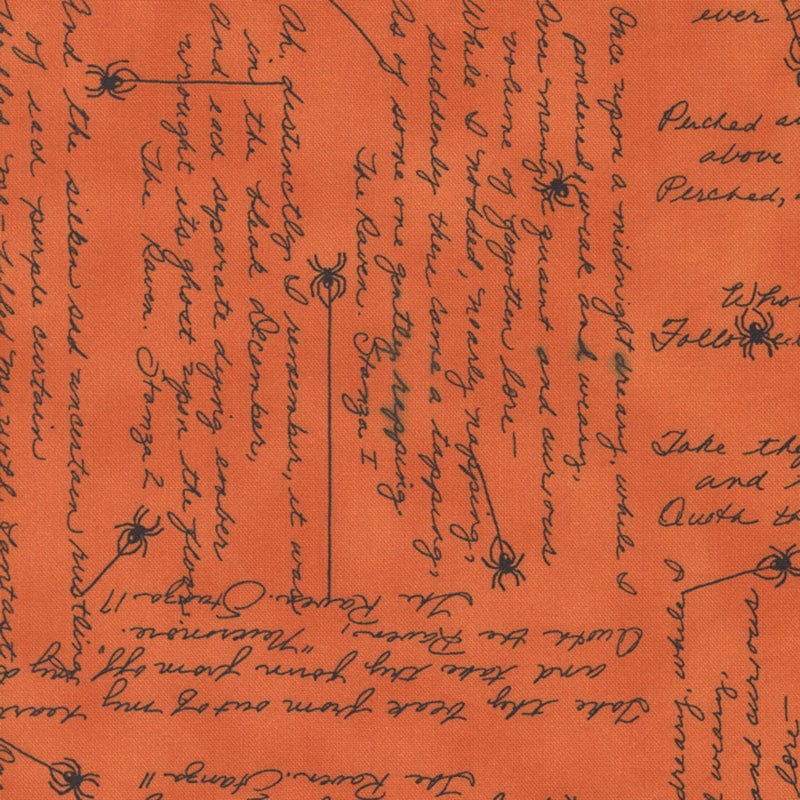 ever
Perched
above
Perched,
Follow
Take thy
and
Quoth
Once upon a midnight dreary, while I
pondered, weak and weary,
Over many a quaint and curious
volume of forgotten lore—
While I nodded, nearly napping,
suddenly there came a tapping,
As of some one gently rapping
The Raven. Stanza I
Ah, distinctly I remember, it was
in the bleak December,
And each separate dying ember
wrought its ghost upon the floor.
The Raven. Stanza 2
And the silken sad uncertain rustling
of each purple curtain
me—filled me with fantastic
Take thy beak from out of my heart
and take thy form from off my
Quoth the Raven, "Nevermore."
The Raven. Stanza 17
The Raven. Stanza 11
dreary, while I
weary,
and curious
lore—